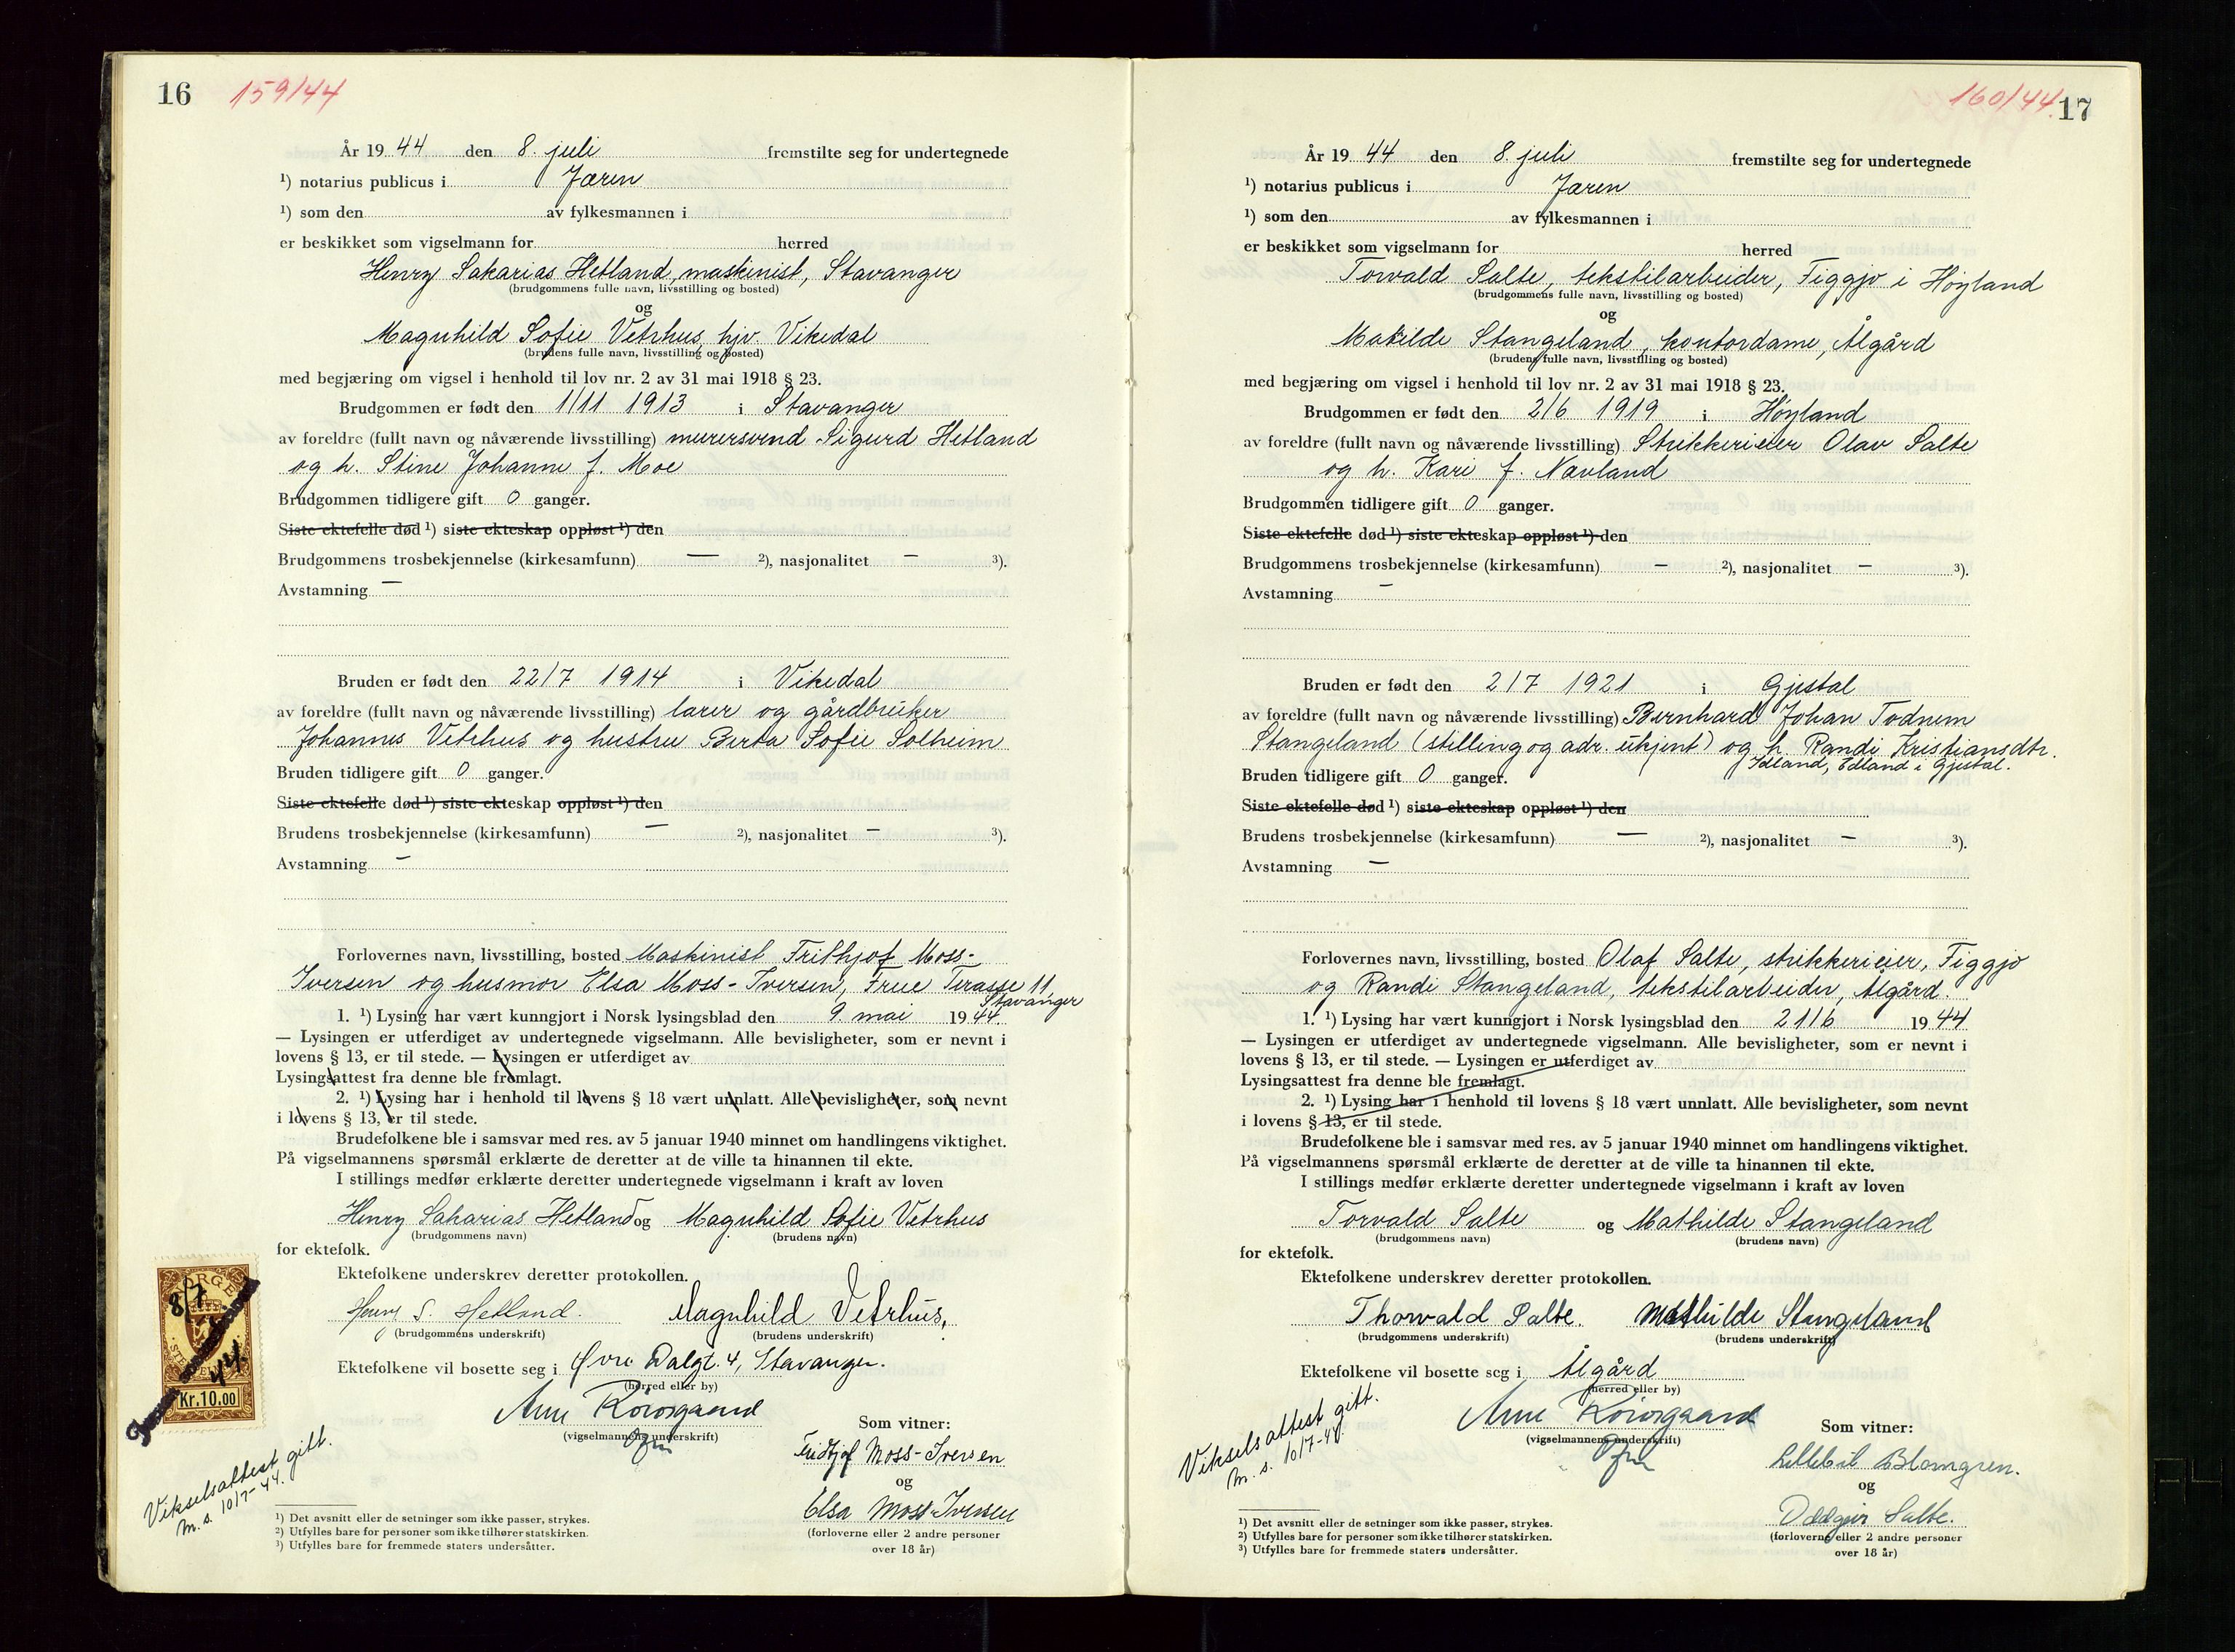 16 159/44
År 1944 den 8. juli fremstilte seg for undertegnede
¹) notarius publicus i Jæren
¹) som den av fylkesmannen i
er beskikket som vigselmann for herred
Henry Sakarias Hetland, maskinist, Stavanger
(brudgommens fulle navn, livsstilling og bosted)
og
Magnhild Sofie Vetrhus, hjv. Vikedal
(brudens fulle navn, livsstilling og bosted)
med begjæring om vigsel i henhold til lov nr. 2 av 31 mai 1918 § 23.
Brudgommen er født den 1/11 1913 i Stavanger
av foreldre (fullt navn og nåværende livsstilling) murersvend Sigurd Hetland
og h. Stine Johanne f. Moe
Brudgommen tidligere gift 0 ganger.
Siste ektefelle død ¹) siste ekteskap oppløst ¹) den
Brudgommens trosbekjennelse (kirkesamfunn) — ²), nasjonalitet — ³).
Avstamning —
Bruden er født den 22/7 1914 i Vikedal
av foreldre (fullt navn og nåværende livsstilling) lærer og gårdbruker
Johannes Vetrhus og hustru Berta Sofie Solheim
Bruden tidligere gift 0 ganger.
Siste ektefelle død ¹) siste ekteskap oppløst ¹) den
Brudens trosbekjennelse (kirkesamfunn) — ²), nasjonalitet — ³).
Avstamning —
Forlovernes navn, livsstilling, bosted Maskinist Frithjof Moss-
Iversen og husmor Elsa Moss-Iversen, Frue Terasse 11,
Stavanger
1. ¹) Lysing har vært kunngjort i Norsk lysingsblad den 9. mai 1944.
— Lysingen er utferdiget av undertegnede vigselmann. Alle bevisligheter, som er nevnt i
lovens § 13, er til stede. — Lysingen er utferdiget av
Lysingsattest fra denne ble fremlagt.
2. ¹) Lysing har i henhold til lovens § 18 vært unnlatt. Alle bevisligheter, som nevnt
i lovens § 13, er til stede.
Brudefolkene ble i samsvar med res. av 5 januar 1940 minnet om handlingens viktighet.
På vigselmannens spørsmål erklærte de deretter at de ville ta hinannen til ekte.
I stillings medfør erklærte deretter undertegnede vigselmann i kraft av loven
Henry Sakarias Hetland og Magnhild Sofie Vetrhus
(brudgommens navn) (brudens navn)
for ektefolk.
Ektefolkene underskrev deretter protokollen.
Henry S. Hetland. Magnhild Vetrhus,
(brudgommens underskrift) (brudens underskrift)
Ektefolkene vil bosette seg i Øvre Dalgt. 4, Stavanger.
(herred eller by)
NORGE
8/7
44
Kr.10.00
(vigselmannens underskrift)
Som vitner:
Fridtjof Moss-Iversen
og
Elsa Moss-Iversen
(forloverne eller 2 andre personer
over 18 år)
Vikselsattest gitt.
m. s. 10/7-44.
¹) Det avsnitt eller de setninger som ikke passer, strykes.
²) Utfylles bare for personer som ikke tilhører statskirken.
³) Utfylles bare for fremmede staters undersåtter.
160/44. 17
År 1944 den 8. juli fremstilte seg for undertegnede
¹) notarius publicus i Jæren
¹) som den av fylkesmannen i
er beskikket som vigselmann for herred
Torvald Salte, tekstilarbeider, Figgjo i Høyland
(brudgommens fulle navn, livsstilling og bosted)
og
Matilde Stangeland, kontordame, Ålgård
(brudens fulle navn, livsstilling og bosted)
med begjæring om vigsel i henhold til lov nr. 2 av 31 mai 1918 § 23.
Brudgommen er født den 2/6 1919 i Høyland
av foreldre (fullt navn og nåværende livsstilling) Strikkerieier Olav Salte
og h. Kari f. Nævland
Brudgommen tidligere gift 0 ganger.
Siste ektefelle død ¹) siste ekteskap oppløst ¹) den
Brudgommens trosbekjennelse (kirkesamfunn) — ²), nasjonalitet — ³).
Avstamning —
Bruden er født den 2/7 1921 i Gjestal
av foreldre (fullt navn og nåværende livsstilling) Bernhard Johan Todnem
Stangeland (stilling og adr. ukjent) og h. Randi Kristiansdtr.
Idland, Edland i Gjestal.
Bruden tidligere gift 0 ganger.
Siste ektefelle død ¹) siste ekteskap oppløst ¹) den
Brudens trosbekjennelse (kirkesamfunn) — ²), nasjonalitet — ³).
Avstamning —
Forlovernes navn, livsstilling, bosted Olaf Salte, strikkerieier, Figgjo
og Randi Stangeland, tekstilarbeider, Ålgård.
1. ¹) Lysing har vært kunngjort i Norsk lysingsblad den 21/6 1944
— Lysingen er utferdiget av undertegnede vigselmann. Alle bevisligheter, som er nevnt i
lovens § 13, er til stede. — Lysingen er utferdiget av
Lysingsattest fra denne ble fremlagt.
2. ¹) Lysing har i henhold til lovens § 18 vært unnlatt. Alle bevisligheter, som nevnt
i lovens § 13, er til stede.
Brudefolkene ble i samsvar med res. av 5 januar 1940 minnet om handlingens viktighet.
På vigselmannens spørsmål erklærte de deretter at de ville ta hinannen til ekte.
I stillings medfør erklærte deretter undertegnede vigselmann i kraft av loven
Torvald Salte og Mathilde Stangeland
(brudgommens navn) (brudens navn)
for ektefolk.
Ektefolkene underskrev deretter protokollen.
Thorvald Salte. Mathilde Stangeland
(brudgommens underskrift) (brudens underskrift)
Ektefolkene vil bosette seg i Ålgård
(herred eller by)
(vigselmannens underskrift)
Som vitner:
Lillebil Blomgren.
og
Oddgeir Salte.
(forloverne eller 2 andre personer
over 18 år)
Vikselsattest gitt.
m. s. 10/7-44.
¹) Det avsnitt eller de setninger som ikke passer, strykes.
²) Utfylles bare for personer som ikke tilhører statskirken.
³) Utfylles bare for fremmede staters undersåtter.